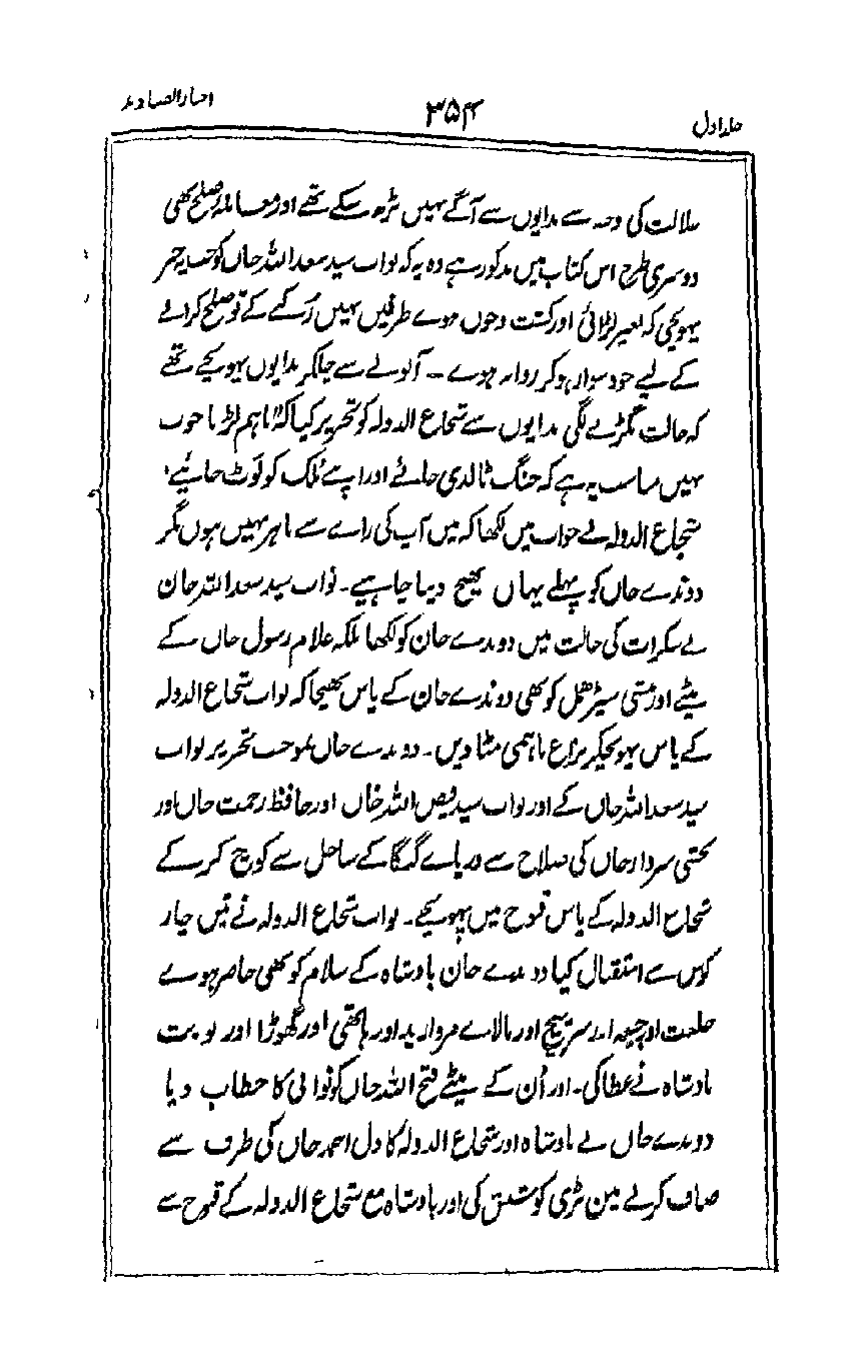 اخبار الصنادید
۳۵۴
جلد اول
علالت کی وجہ سے بدایوں سے آگے نہیں بڑھ سکے تھے اور معاملہ صلح بھی
دوسری طرح اس کتاب میں مذکور ہے وہ یہ کہ نواب سید سعد اللہ خاں کو جب یہ خبر
پہونچی کہ بغیر لڑائی اور کشت وخوں ہوے طرفین نہیں رُکنے کے تو صلح کرانے
کے لیے خود سوار ہو کر روانہ ہوے ۔ آنولے سے چلکر بدایوں پہونچے تھے
کہ حالت بگڑنے لگی بدایوں سے شجاع الدولہ کو تحریر کیا کہ "باہم لڑنا خوب
نہیں مناسب یہ ہے کہ جنگ ٹال دی جائے اور اپنے مُلک کو لَوٹ جائیے"
شجاع الدولہ نے جواب میں لکھا کہ میں آپ کی راے سے باہر نہیں ہوں مگر
دوندے خاں کو پہلے یہاں بھیج دینا چاہیے ۔ نواب سید سعد اللہ خان
نے سکرات کی حالت میں دوندے خان کو لکھا بلکہ غلام رسول خاں کے
بیٹے اور منشی سیڑھمل کو بھی دوندے خان کے پاس بھیجا کہ نواب شجاع الدولہ
کے پاس پہونچکر نزاع باہمی مٹا دیں ۔ دوندے خاں بموجب تحریر نواب
سید سعد اللہ خاں کے اور نواب سید فیض اللہ خاں اور حافظ رحمت خاں اور
بخشی سردار خاں کی صلاح سے دریاے گنگا کے ساحل سے کوچ کر کے
شجاع الدولہ کے پاس فوج میں پہونچے ۔ نواب شجاع الدولہ نے تین چار
کوس سے استقبال کیا دوندے خان بادشاہ کے سلام کو بھی حاضر ہوے
خلعت اور جیغہ اور سرپیچ اور مالاے مروارید اور ہاتھی اور گھوڑا اور نوبت
بادشاہ نے عطا کی ۔ اور اُن کے بیٹے فتح اللہ خاں کو نوابی کا خطاب دیا
دوندے خاں نے بادشاہ اور شجاع الدولہ کا دل احمد خاں کی طرف سے
صاف کرنے مین بڑی کوشش کی اور بادشاہ مع شجاع الدولہ کے قنوج سے